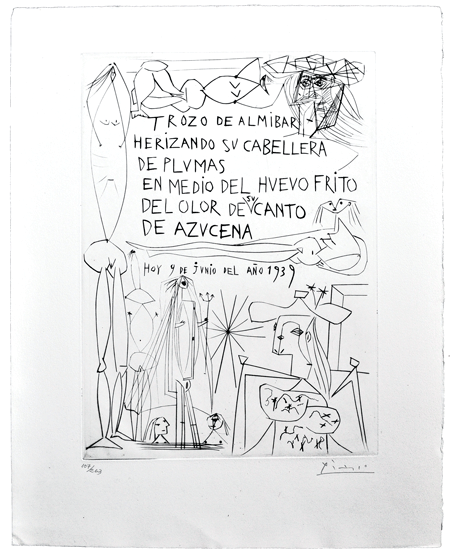 TROZO DE ALMIBAR
HERIZANDO SU CABELLERA
DE PLVMAS
EN MEDIO DEL HUEVO FRITO
DEL OLOR DE SU CANTO
DE AZVCENA
HOY 9 DE JVNIO DEL AÑO 1939
Picasso